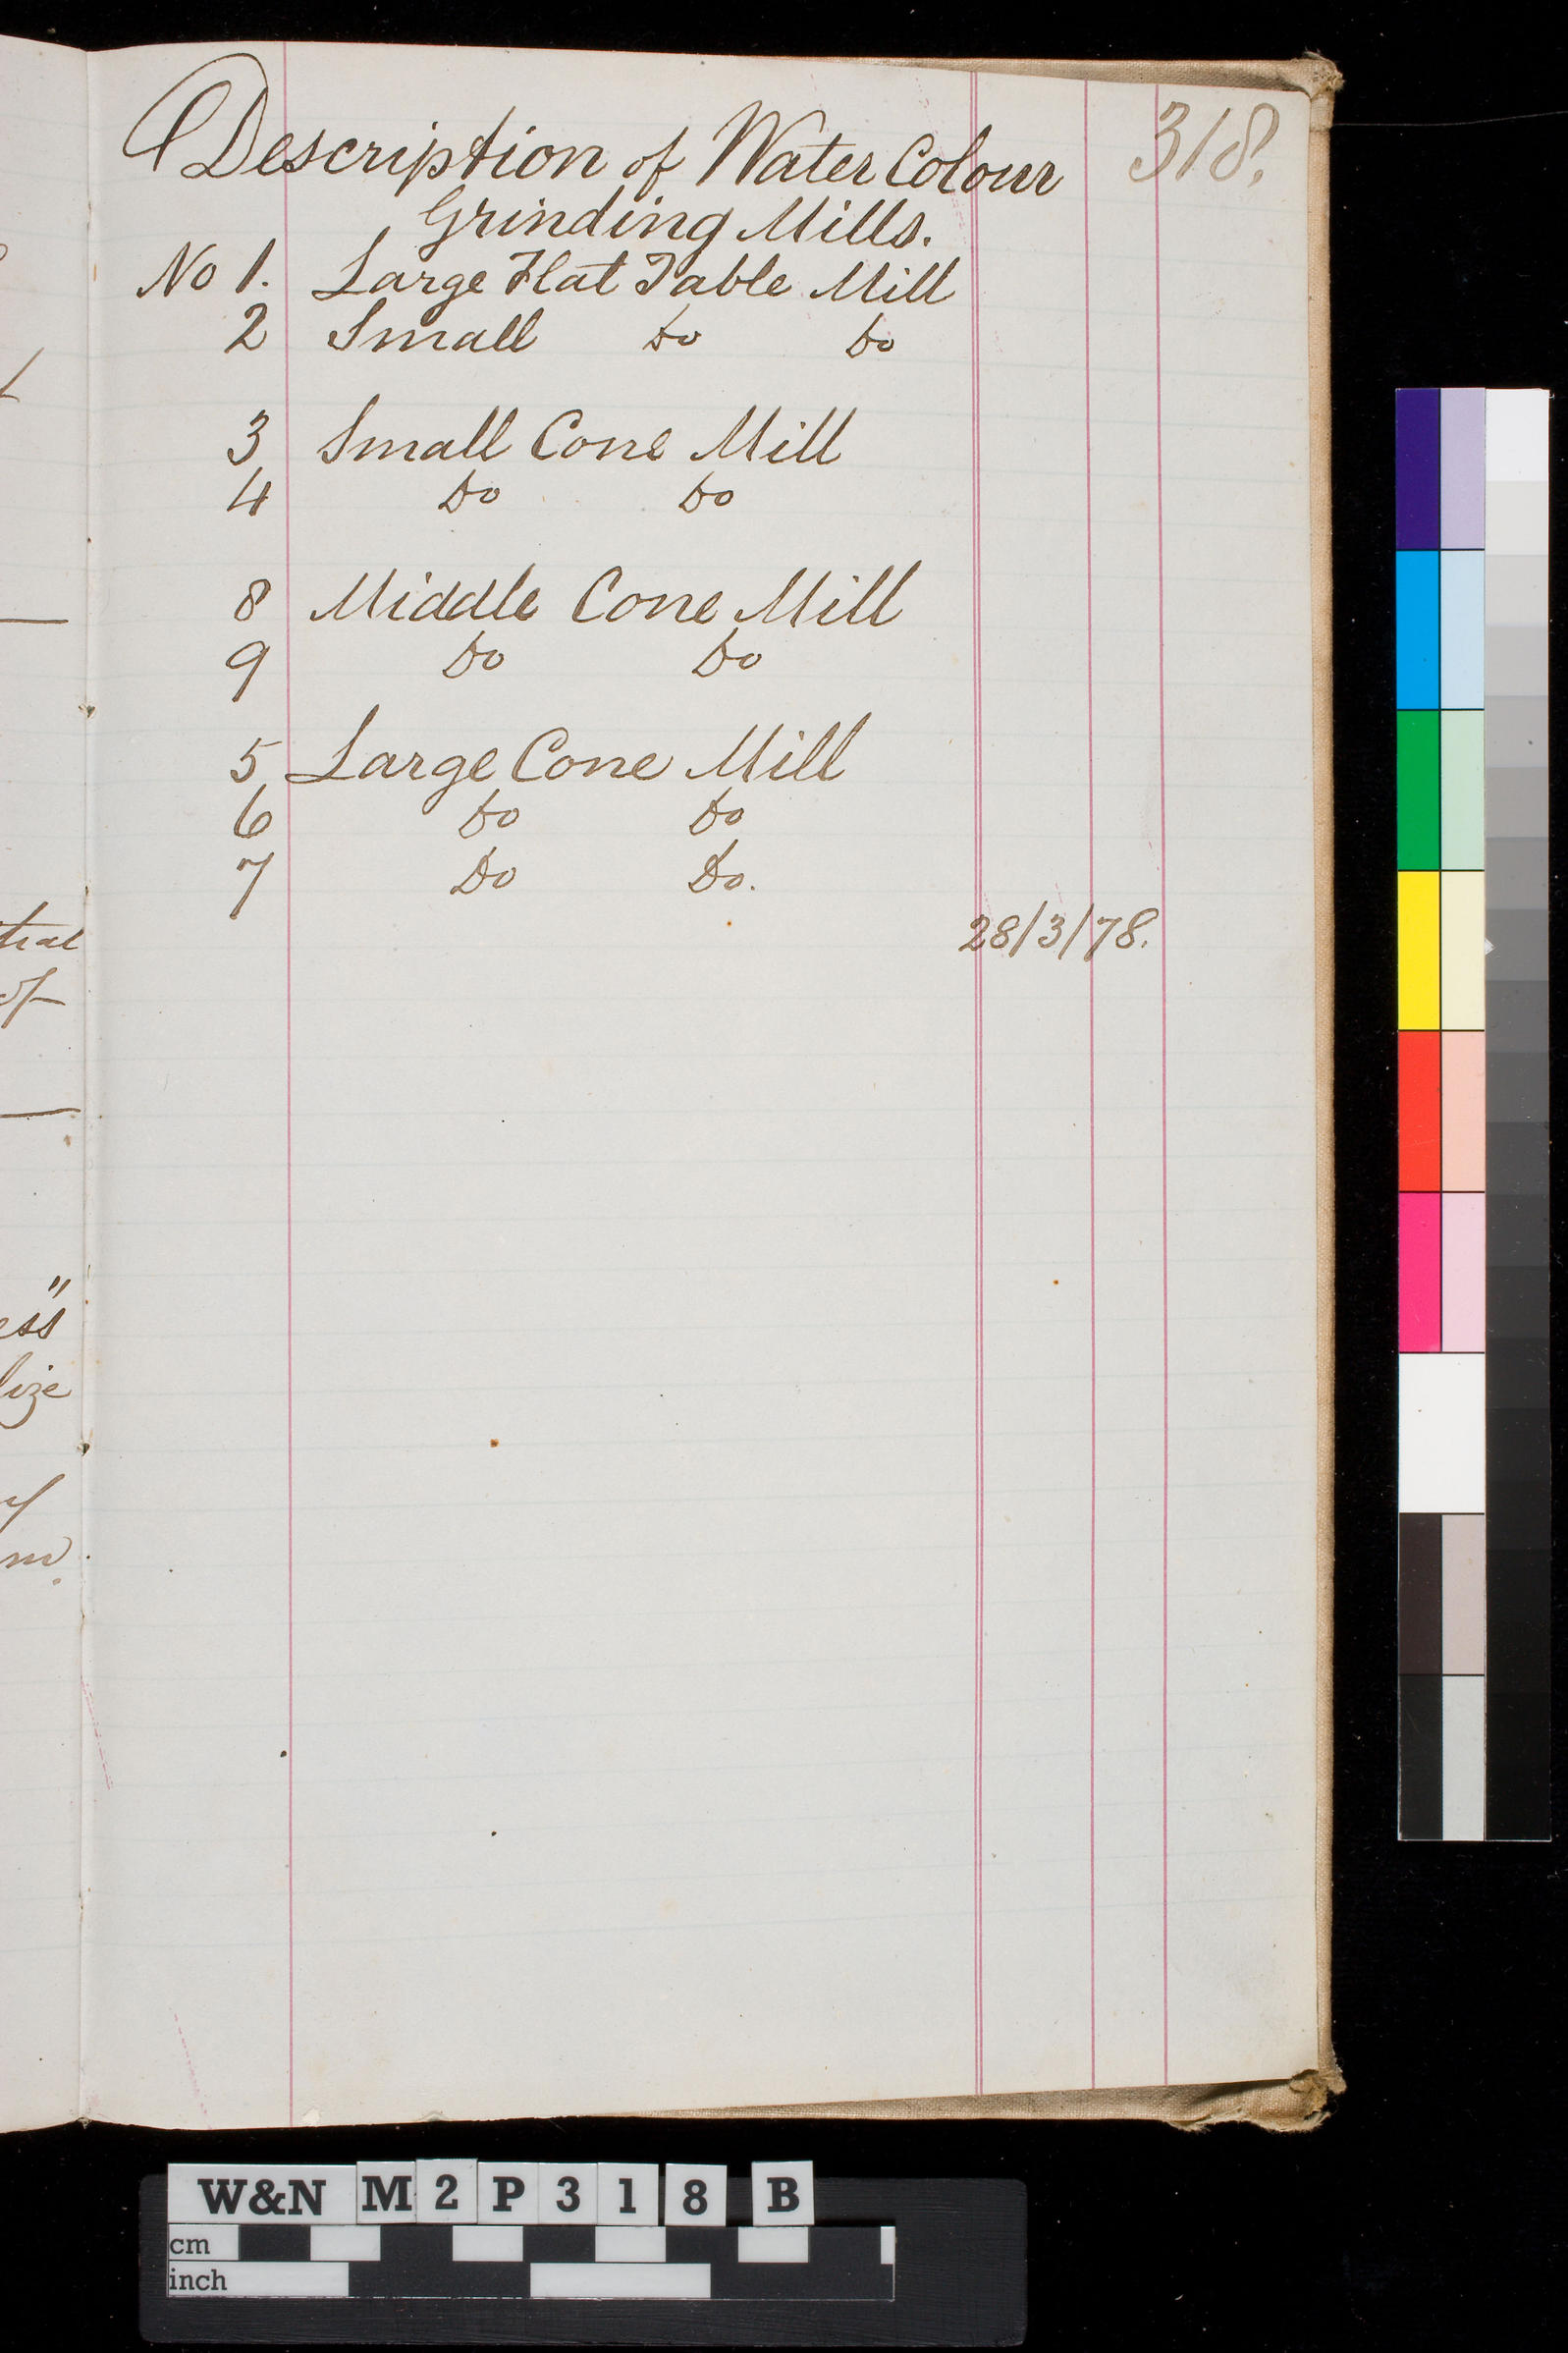 318.
Description of Water Colour
Grinding Mills.
No 1. Large Flat Table Mill
2 Small Do Do
3 Small Cone Mill
4 Do Do
8 Middle Cone Mill
9 Do Do
5 Large Cone Mill
6 Do Do
7 Do Do.
28/3/78.
of
W&N M2P318 B
cm
inch